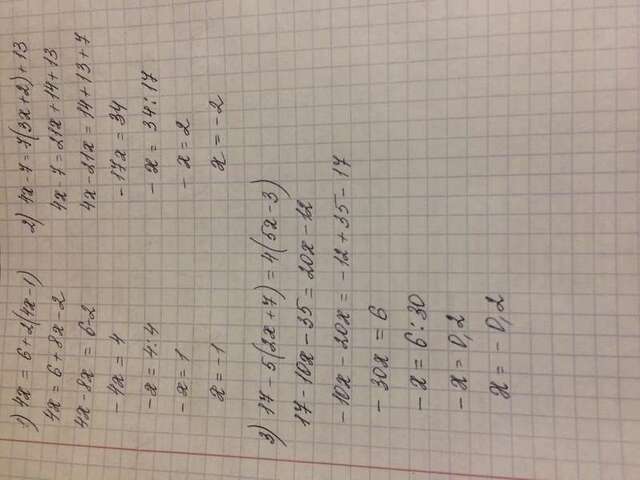 1) 4x = 6+2(4x-1)
4x = 6+8x-2
4x-8x = 6-2
-4x = 4
-x = 4:4
-x = 1
x = -1
2) 4x-7=7(3x+2)+13
4x-7=21x+14+13
4x-21x=14+13+7
-17x = 34
-x = 34:17
-x = 2
x = -2
3) 17-5(2x+7)=4(5x-3)
17-10x-35=20x-12
-10x-20x=-12+35-17
-30x = 6
-x = 6:30
-x = 0,2
x = -0,2